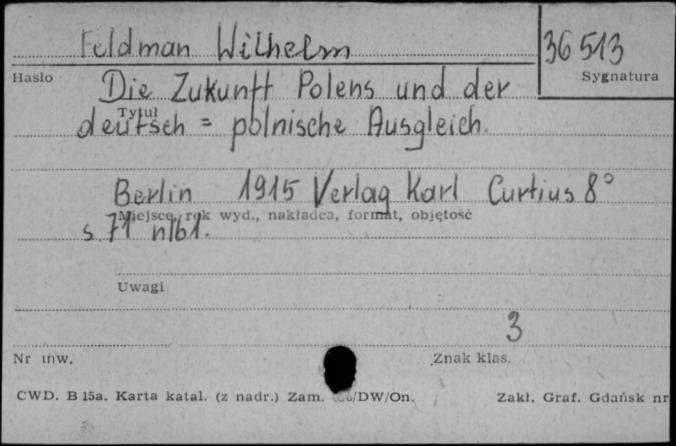 Feldman Wilhelm
36 513
Hasło
Sygnatura
Die Zukunft Polens und der
Tytuł
deutsch = polnische Ausgleich.
Berlin 1915 Verlag Karl Curtius 8°
Miejsce, rok wyd., nakładca, format, objętość
s. 71 nlb1.
Uwagi
3
Nr inw.
Znak klas.
CWD. B 15a. Karta katal. (z nadr.) Zam. /DW/On.
Zakł. Graf. Gdańsk nr